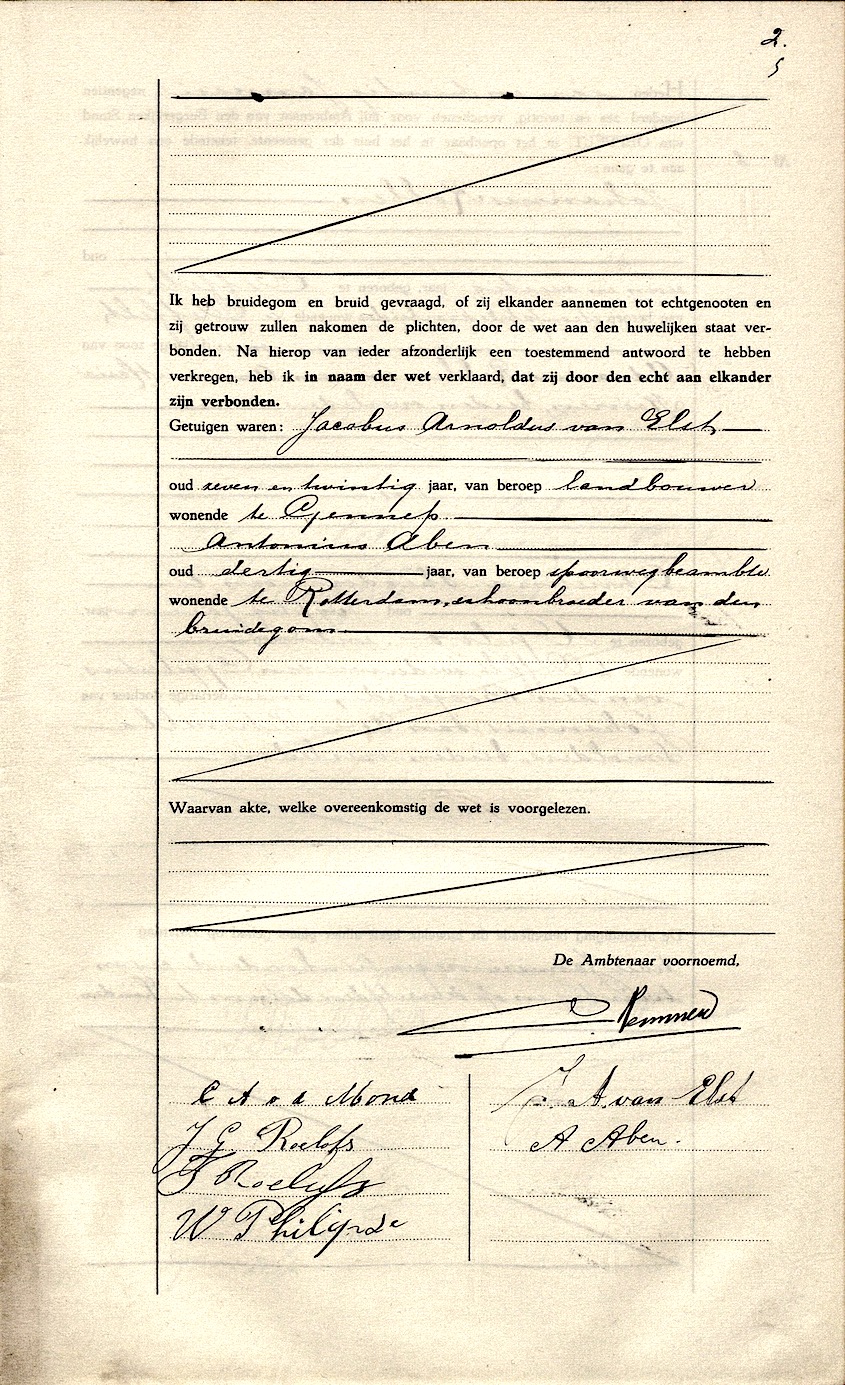 2.
5
Ik heb bruidegom en bruid gevraagd, of zij elkander aannemen tot echtgenooten en
zij getrouw zullen nakomen de plichten, door de wet aan den huwelijken staat ver-
bonden. Na hierop van ieder afzonderlijk een toestemmend antwoord te hebben
verkregen, heb ik in naam der wet verklaard, dat zij door den echt aan elkander
zijn verbonden.
Getuigen waren: Jacobus Arnoldus van Elst
oud zeven en twintig jaar, van beroep landbouwer
wonende te Gennep
Antonius Aben
oud dertig jaar, van beroep spoorwegbeambte
wonende te Rotterdam, schoonbroeder van den
bruidegom
Waarvan akte, welke overeenkomstig de wet is voorgelezen.
De Ambtenaar voornoemd,
C A v d Mond
J. A. van Elst
J G Roelofs
A Aben.
T Roelofs
W Philipse